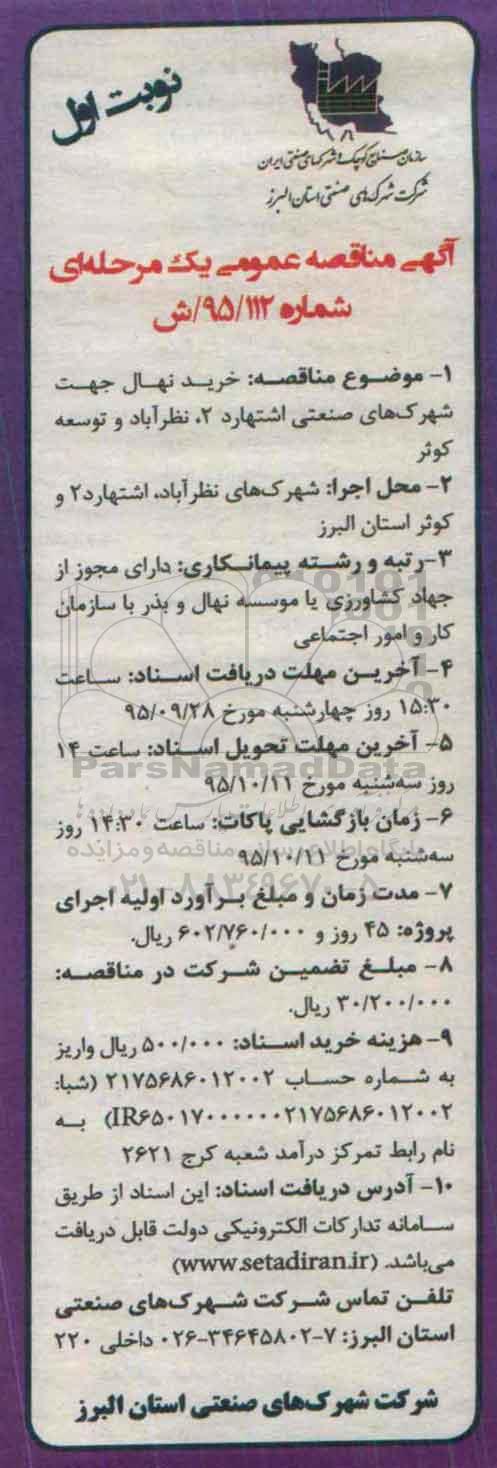 نوبت اول
سازمان صنایع کوچک و شهرکهای صنعتی ایران
شرکت شهرکهای صنعتی استان البرز
آگهی مناقصه عمومی یک مرحله‌ای
شماره ۹۵/۱۱۲/ش
۱- موضوع مناقصه: خرید نهال جهت
شهرک‌های صنعتی اشتهارد ۲، نظرآباد و توسعه
کوثر
۲- محل اجرا: شهرک‌های نظرآباد، اشتهارد۲ و
کوثر استان البرز
۳-رتبه و رشته پیمانکاری: دارای مجوز از
جهاد کشاورزی یا موسسه نهال و بذر با سازمان
کار و امور اجتماعی
۴- آخرین مهلت دریافت اسناد: ساعت
۱۵:۳۰ روز چهارشنبه مورخ ۹۵/۰۹/۲۸
۵- آخرین مهلت تحویل اسناد: ساعت ۱۴
روز سه‌شنبه مورخ ۹۵/۱۰/۱۱
ParsNamadData
۶- زمان بازگشایی پاکات: ساعت ۱۴:۳۰ روز
سه‌شنبه مورخ ۹۵/۱۰/۱۱
پایگاه اطلاع رسانی مناقصه و مزایده
۰۲۱-۸۸۳۴۹۶۷۰-۵
۷- مدت زمان و مبلغ برآورد اولیه اجرای
پروژه: ۴۵ روز و ۶۰۲/۷۶۰/۰۰۰ ریال.
۸- مبلغ تضمین شرکت در مناقصه:
۳۰/۲۰۰/۰۰۰ ریال.
۹- هزینه خرید اسناد: ۵۰۰/۰۰۰ ریال واریز
به شماره حساب ۲۱۷۵۶۸۶۰۱۲۰۰۲ (شبا:
IR۶۵۰۱۷۰۰۰۰۰۰۰۲۱۷۵۶۸۶۰۱۲۰۰۲) به
نام رابط تمرکز درآمد شعبه کرج ۲۶۲۱
۱۰- آدرس دریافت اسناد: این اسناد از طریق
سامانه تدارکات الکترونیکی دولت قابل دریافت
می‌باشد. (www.setadiran.ir)
تلفن تماس شرکت شهرک‌های صنعتی
استان البرز: ۷-۳۴۶۴۵۸۰۲-۰۲۶ داخلی ۲۲۰
شرکت شهرک‌های صنعتی استان البرز